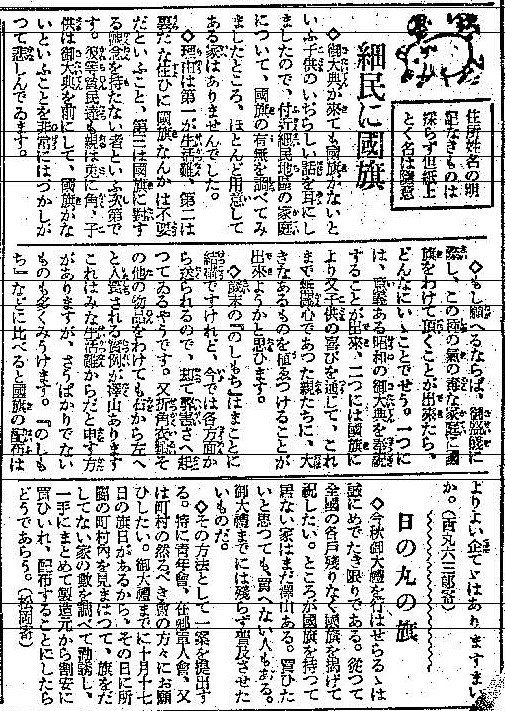 住所姓名の明
記なきものは
採らず但紙上
とく名は随意
細民に國旗
◇御大典が來ても國旗がないと
いふ子供のいぢらしい話を耳にし
ましたので、付近細民地區の家庭
について、國旗の有無を調べてみ
ましたところ、ほとんど用意して
ある家はありませんでした。
◇理由は第一が生活難、第二は
裏だな住ひに國旗なんかは不要
だといふこと、第三は國旗に對す
る觀念を持たない者といふ次第で
す。彼等貧民達も親は兎に角、子
供は御大典を前にして、國旗がな
いといふことを非常にはづかしが
つて悲しんでゐます。
◇もし願へるならば、御盛儀に
際し、この種の氣の毒な家庭に國
旗をわけて頂くことが出來たら、
どんなにいゝことでせう。一つに
は、意義ある昭和の御大典を奉祝
することが出來、二つには國旗に
より又子供の喜びを通じて、これ
まで無關心であつた親たちに、大
きなあるものを植ゑつけることが
出來ようかと思ひます。
◇歳末の『のしもち』はまことに
結構ですけれど、今では各方面か
ら送られるので、却て弊害さへ起
つてゐるやうです。又折角衣類そ
の他の物品をわけても右から左へ
と入質される實例が澤山あります
これはみな生活難からだと申す方
がありますが、さうばかりでない
ものも多くみうけます。『のしも
ち』などに比べると國旗の配布は
よりよい企てゞはありますまい
か。(西丸六三郎寄)
日の丸の旗
◇今秋御大禮を行はせらるゝは
誠にめでたき限りである。從つて
全國の各戸殘りなく國旗を揭げて
祝したい。ところが國旗を持つて
居ない家はまだ澤山ある。買ひた
いと思つても、買へない人もある。
御大禮までには殘らず普及させた
いものだ。
◇その方法として一案を提出す
る。特に青年會、在郷軍人會、又
は町村の然るべき會の方々にお願
ひしたい。御大禮までに十月十七
日の旗日があるから、その日に所
屬の町村内を見まはつて、旗をだ
してない家の數を調べて勸誘し、
一手にまとめて製造元から割安に
買ひいれ、配布することにしたら
どうであらう。(松岡寄)